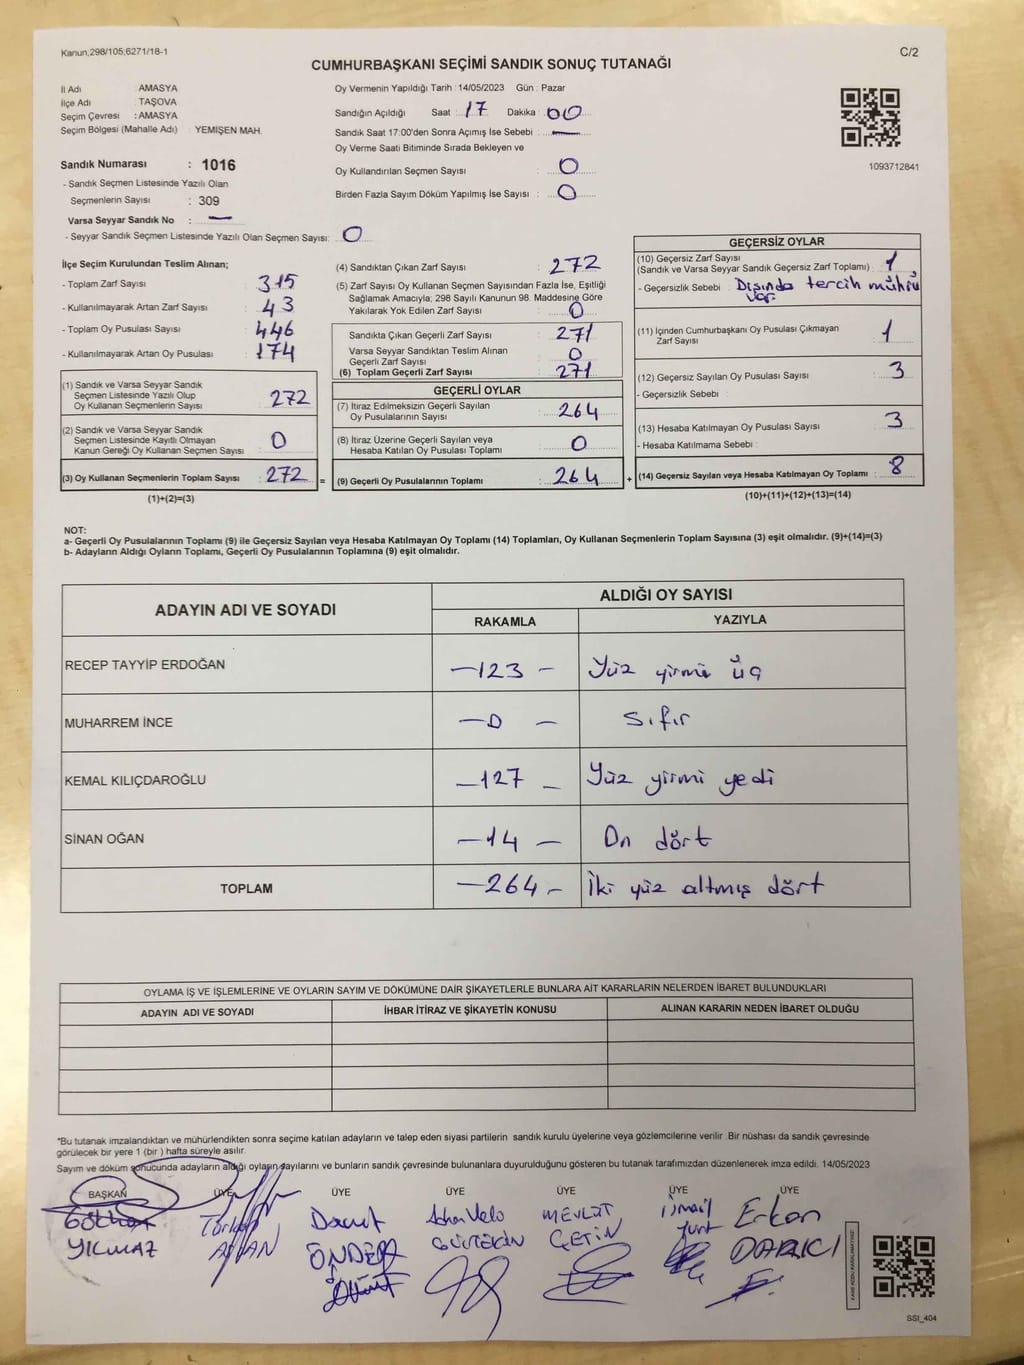 Kanun;298/105;6271/18-1
C/2
CUMHURBAŞKANI SEÇİMİ SANDIK SONUÇ TUTANAĞI
İl Adı : AMASYA
İlçe Adı : TAŞOVA
Seçim Çevresi : AMASYA
Seçim Bölgesi (Mahalle Adı) : YEMİŞEN MAH.
Sandık Numarası : 1016
- Sandık Seçmen Listesinde Yazılı Olan
Seçmenlerin Sayısı : 309
Varsa Seyyar Sandık No : —
- Seyyar Sandık Seçmen Listesinde Yazılı Olan Seçmen Sayısı: 0
Oy Vermenin Yapıldığı Tarih : 14/05/2023 Gün : Pazar
Sandığın Açıldığı Saat : 17 Dakika : 00
Sandık Saat 17:00'den Sonra Açımış İse Sebebi : —
Oy Verme Saati Bitiminde Sırada Bekleyen ve
Oy Kullandırılan Seçmen Sayısı : 0
Birden Fazla Sayım Döküm Yapılmış İse Sayısı : 0
1093712841
İlçe Seçim Kurulundan Teslim Alınan;
- Toplam Zarf Sayısı : 315
- Kullanılmayarak Artan Zarf Sayısı : 43
- Toplam Oy Pusulası Sayısı : 446
- Kullanılmayarak Artan Oy Pusulası : 174
(1) Sandık ve Varsa Seyyar Sandık
Seçmen Listesinde Yazılı Olup
Oy Kullanan Seçmenlerin Sayısı : 272
(2) Sandık ve Varsa Seyyar Sandık
Seçmen Listesinde Kayıtlı Olmayan
Kanun Gereği Oy Kullanan Seçmen Sayısı : 0
(3) Oy Kullanan Seçmenlerin Toplam Sayısı : 272 =
(1)+(2)=(3)
(4) Sandıktan Çıkan Zarf Sayısı : 272
(5) Zarf Sayısı Oy Kullanan Seçmen Sayısından Fazla İse, Eşitliği
Sağlamak Amacıyla; 298 Sayılı Kanunun 98. Maddesine Göre
Yakılarak Yok Edilen Zarf Sayısı : 0
Sandıkta Çıkan Geçerli Zarf Sayısı : 271
Varsa Seyyar Sandıktan Teslim Alınan
Geçerli Zarf Sayısı : 0
(6) Toplam Geçerli Zarf Sayısı : 271
GEÇERLİ OYLAR
(7) İtiraz Edilmeksizin Geçerli Sayılan
Oy Pusulalarının Sayısı : 264
(8) İtiraz Üzerine Geçerli Sayılan veya
Hesaba Katılan Oy Pusulası Toplamı : 0
(9) Geçerli Oy Pusulalarının Toplamı : 264 +
GEÇERSİZ OYLAR
(10) Geçersiz Zarf Sayısı
(Sandık ve Varsa Seyyar Sandık Geçersiz Zarf Toplamı) : 1
- Geçersizlik Sebebi : Dışında tercih mührü
var
(11) İçinden Cumhurbaşkanı Oy Pusulası Çıkmayan
Zarf Sayısı : 1
(12) Geçersiz Sayılan Oy Pusulası Sayısı : 3
- Geçersizlik Sebebi :
(13) Hesaba Katılmayan Oy Pusulası Sayısı : 3
- Hesaba Katılmama Sebebi :
(14) Geçersiz Sayılan veya Hesaba Katılmayan Oy Toplamı : 8
(10)+(11)+(12)+(13)=(14)
NOT:
a- Geçerli Oy Pusulalarının Toplamı (9) ile Geçersiz Sayılan veya Hesaba Katılmayan Oy Toplamı (14) Toplamları, Oy Kullanan Seçmenlerin Toplam Sayısına (3) eşit olmalıdır. (9)+(14)=(3)
b- Adayların Aldığı Oyların Toplamı, Geçerli Oy Pusulalarının Toplamına (9) eşit olmalıdır.
ADAYIN ADI VE SOYADI
ALDIĞI OY SAYISI
RAKAMLA YAZIYLA
RECEP TAYYİP ERDOĞAN —123 — Yüz yirmi üç
MUHARREM İNCE —0 — Sıfır
KEMAL KILIÇDAROĞLU —127 — Yüz yirmi yedi
SİNAN OĞAN —14 — On dört
TOPLAM —264 — İki yüz altmış dört
OYLAMA İŞ VE İŞLEMLERİNE VE OYLARIN SAYIM VE DÖKÜMÜNE DAİR ŞİKAYETLERLE BUNLARA AİT KARARLARIN NELERDEN İBARET BULUNDUKLARI
ADAYIN ADI VE SOYADI İHBAR İTİRAZ VE ŞİKAYETİN KONUSU ALINAN KARARIN NEDEN İBARET OLDUĞU
*Bu tutanak imzalandıktan ve mühürlendikten sonra seçime katılan adayların ve talep eden siyasi partilerin sandık kurulu üyelerine veya gözlemcilerine verilir .Bir nüshası da sandık çevresinde
görülecek bir yere 1 (bir ) hafta süreyle asılır.
Sayım ve döküm sonucunda adayların aldığı oyların sayılarını ve bunların sandık çevresinde bulunanlara duyurulduğunu gösteren bu tutanak tarafımızdan düzenlenerek imza edildi. 14/05/2023
BAŞKAN ÜYE ÜYE ÜYE ÜYE ÜYE ÜYE
Gökhan Türkan Davut MEVLÜT İsmail Erkan
YILMAZ ASLAN ÖNDER GÜLTEKİN ÇETİN Yurt DARICI
SSI_404